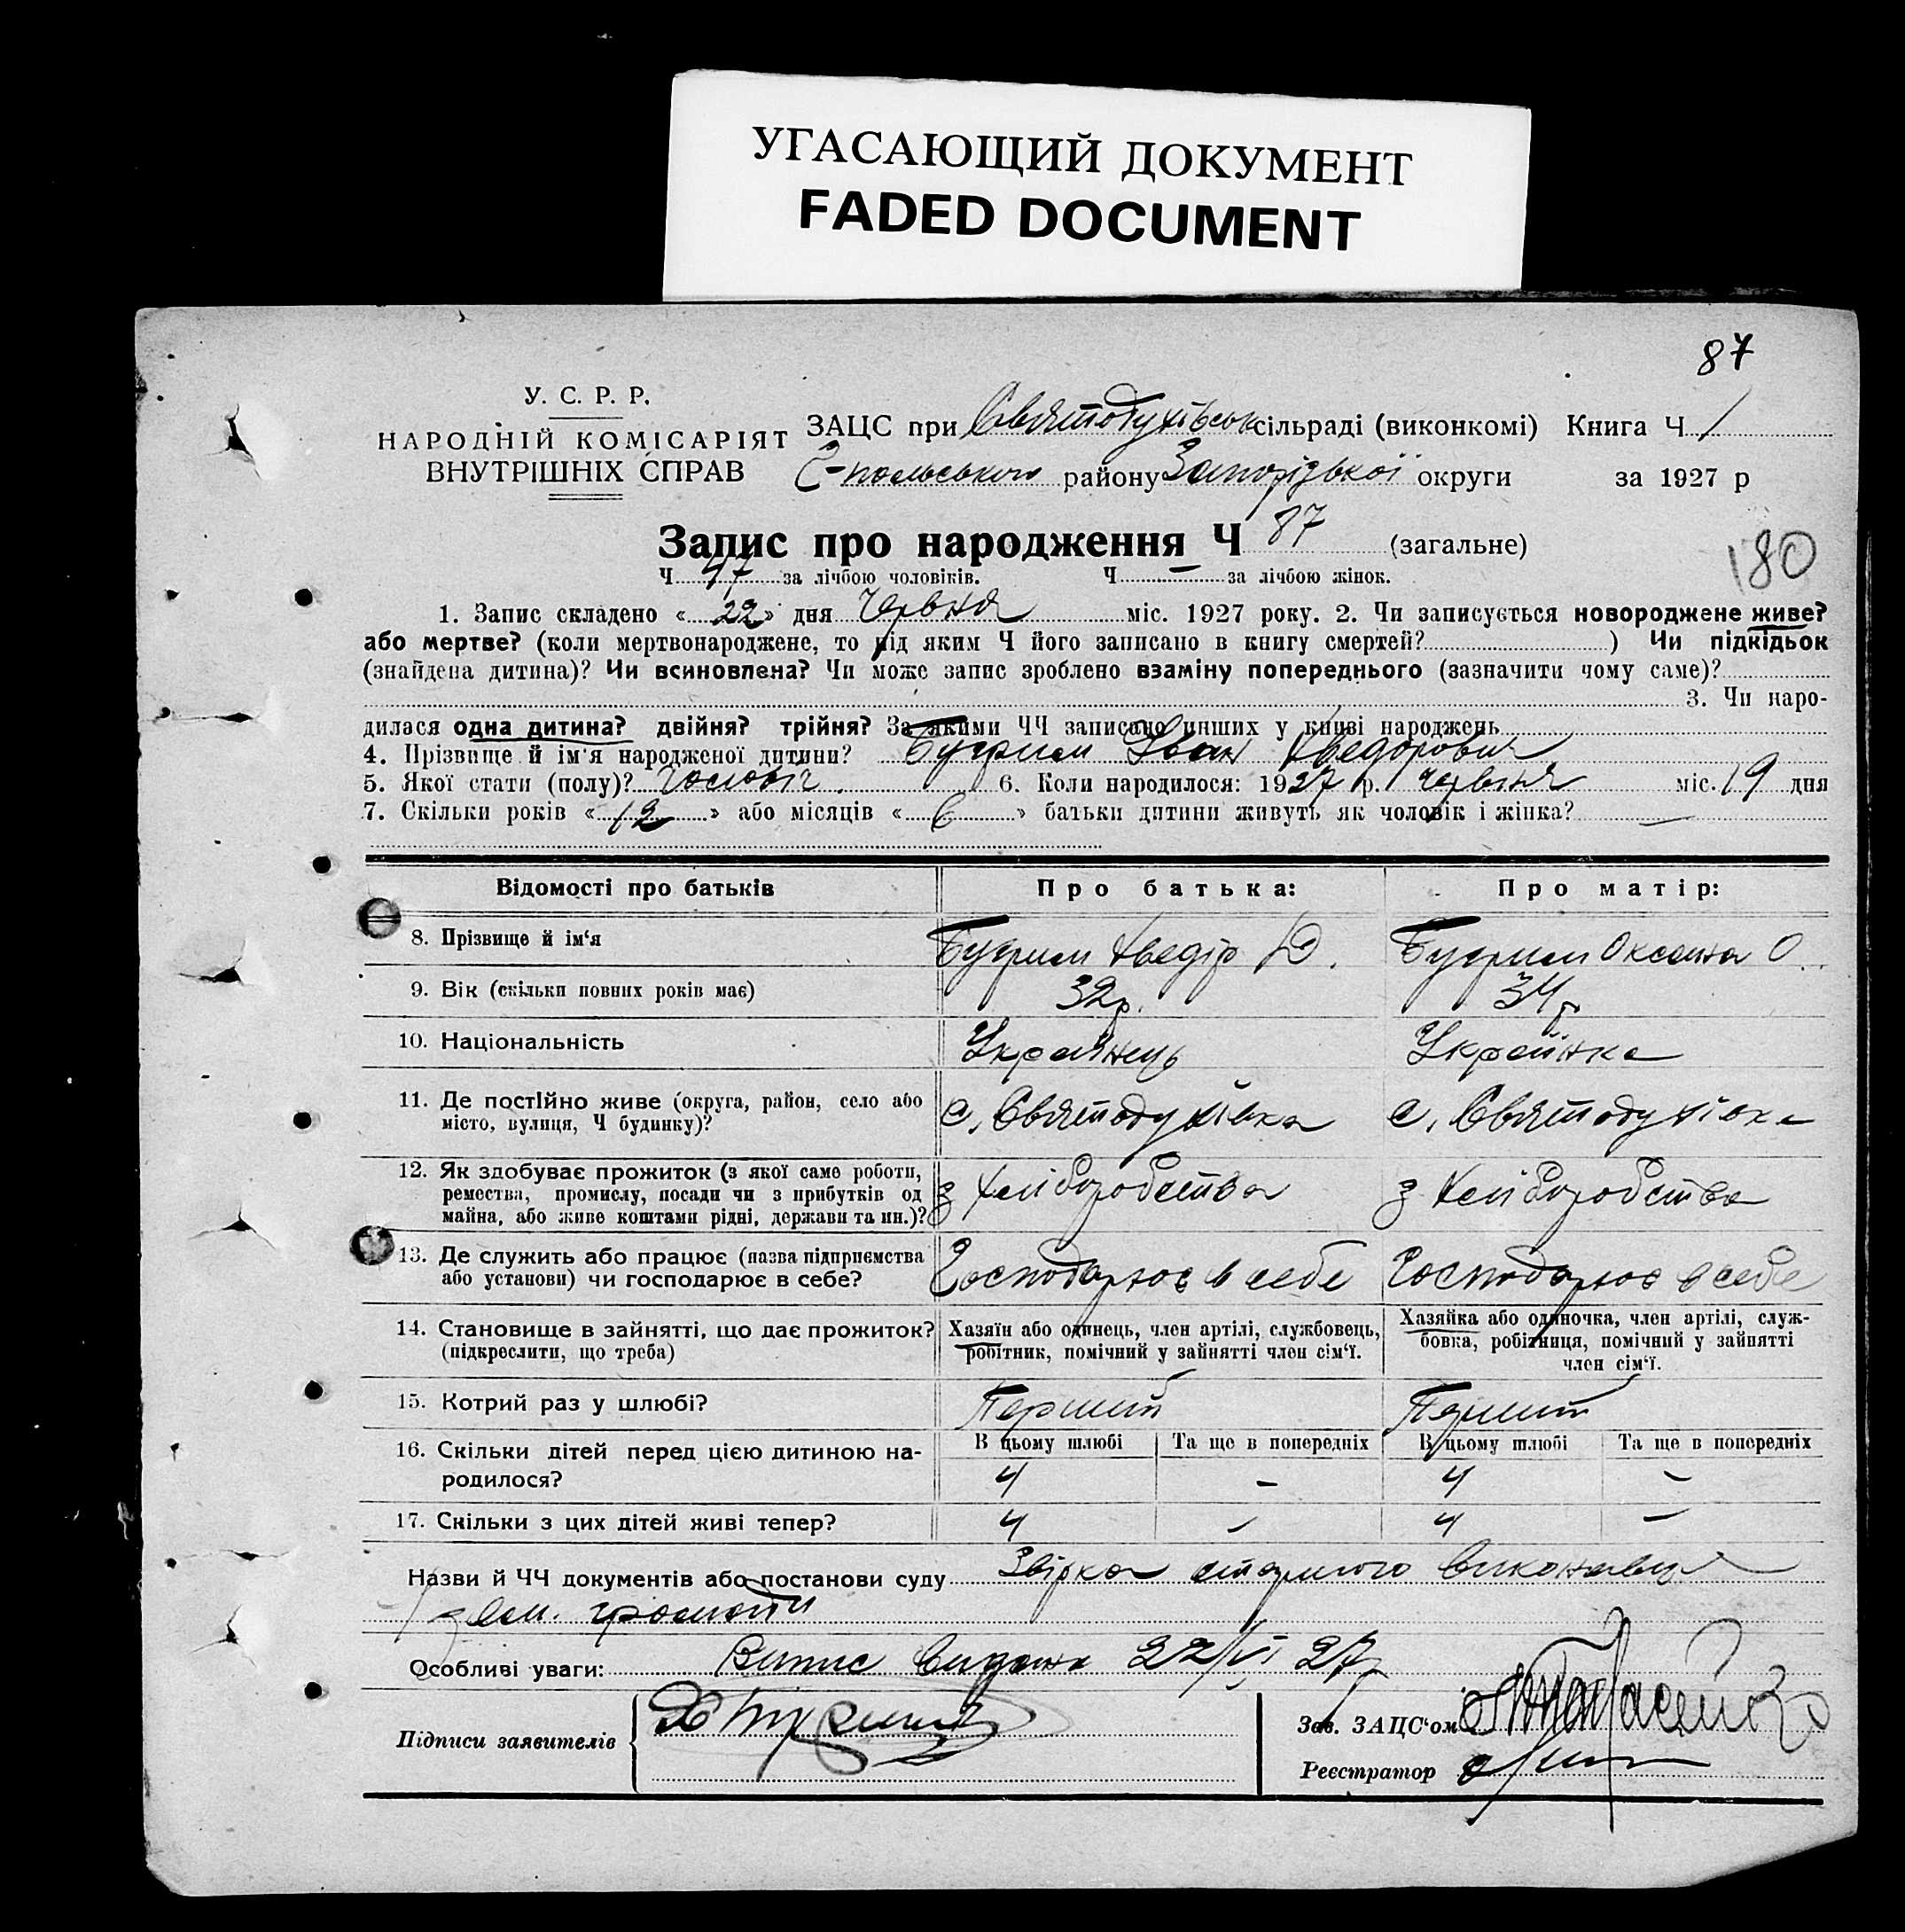 УГАСАЮЩИЙ ДОКУМЕНТ
FADED DOCUMENT
87
У. С. Р. Р.
НАРОДНІЙ КОМІСАРІЯТ
ВНУТРІШНІХ СПРАВ
ЗАЦС при Святодухівськ сільраді (виконкомі) Книга Ч 1
С-польського району Запорізької округи за 1927 р
Запис про народження Ч 87 (загальне)
180
Ч 47 за лічбою чоловіків. Ч — за лічбою жінок.
1. Запис складено «22» дня Червня міс. 1927 року. 2. Чи записується новороджене живе?
або мертве? (коли мертвонароджене, то під яким Ч його записано в книгу смертей? ) Чи підкідьок
(знайдена дитина)? Чи всиновлена? Чи може запис зроблено взаміну попереднього (зазначити чому саме)?
3. Чи наро-
дилася одна дитина? двійня? трійня? За якими ЧЧ записано инших у книзі народжень
4. Прізвище й ім'я народженої дитини? Бугрим Іван Хведорович
5. Якої стати (полу)? Чоловіч. 6. Коли народилося: 1927 р. червня міс. 19 дня
7. Скільки років «12» або місяців «6» батьки дитини живуть як чоловік і жінка? —
Відомості про батьків Про батька: Про матір:
8. Прізвище й ім‘я Бугрим Хведір Ю. Бугрим Оксана О.
9. Вік (скільки повних років має) 32р. 34р
10. Національність Українець Українка
11. Де постійно живе (округа, район, село або
місто, вулиця, Ч будинку)? с. Святодухівка с. Святодухівка
12. Як здобуває прожиток (з якої саме роботи,
ремества, промислу, посади чи з прибутків од
майна, або живе коштами рідні, держави та ин.)? з хліборобства з хліборобства
13. Де служить або працює (назва підприємства
або установи) чи господарює в себе? Господарює в себе Господарює в себе
14. Становище в зайнятті, що дає прожиток?
(підкреслити, що треба)
Хазяїн або одинець, член артілі, службовець,
робітник, помічний у зайнятті член сім‘ї.
Хазяйка або одиночка, член артілі, служ-
бовка, робітниця, помічний у зайнятті
член сім‘ї.
15. Котрий раз у шлюбі? Перший Перший
16. Скільки дітей перед цією дитиною на-
родилося?
В цьому шлюбі Та ще в попередніх В цьому шлюбі Та ще в попередніх
4 – 4 –
17. Скільки з цих дітей живі тепер? 4 – 4 –
Назви й ЧЧ документів або постанови суду Звірка старшого виконавця
зем. громади
Особливі уваги: Випис видана 22/VI 27
Підписи заявителів
Зав. ЗАЦС‘ом
Реєстратор